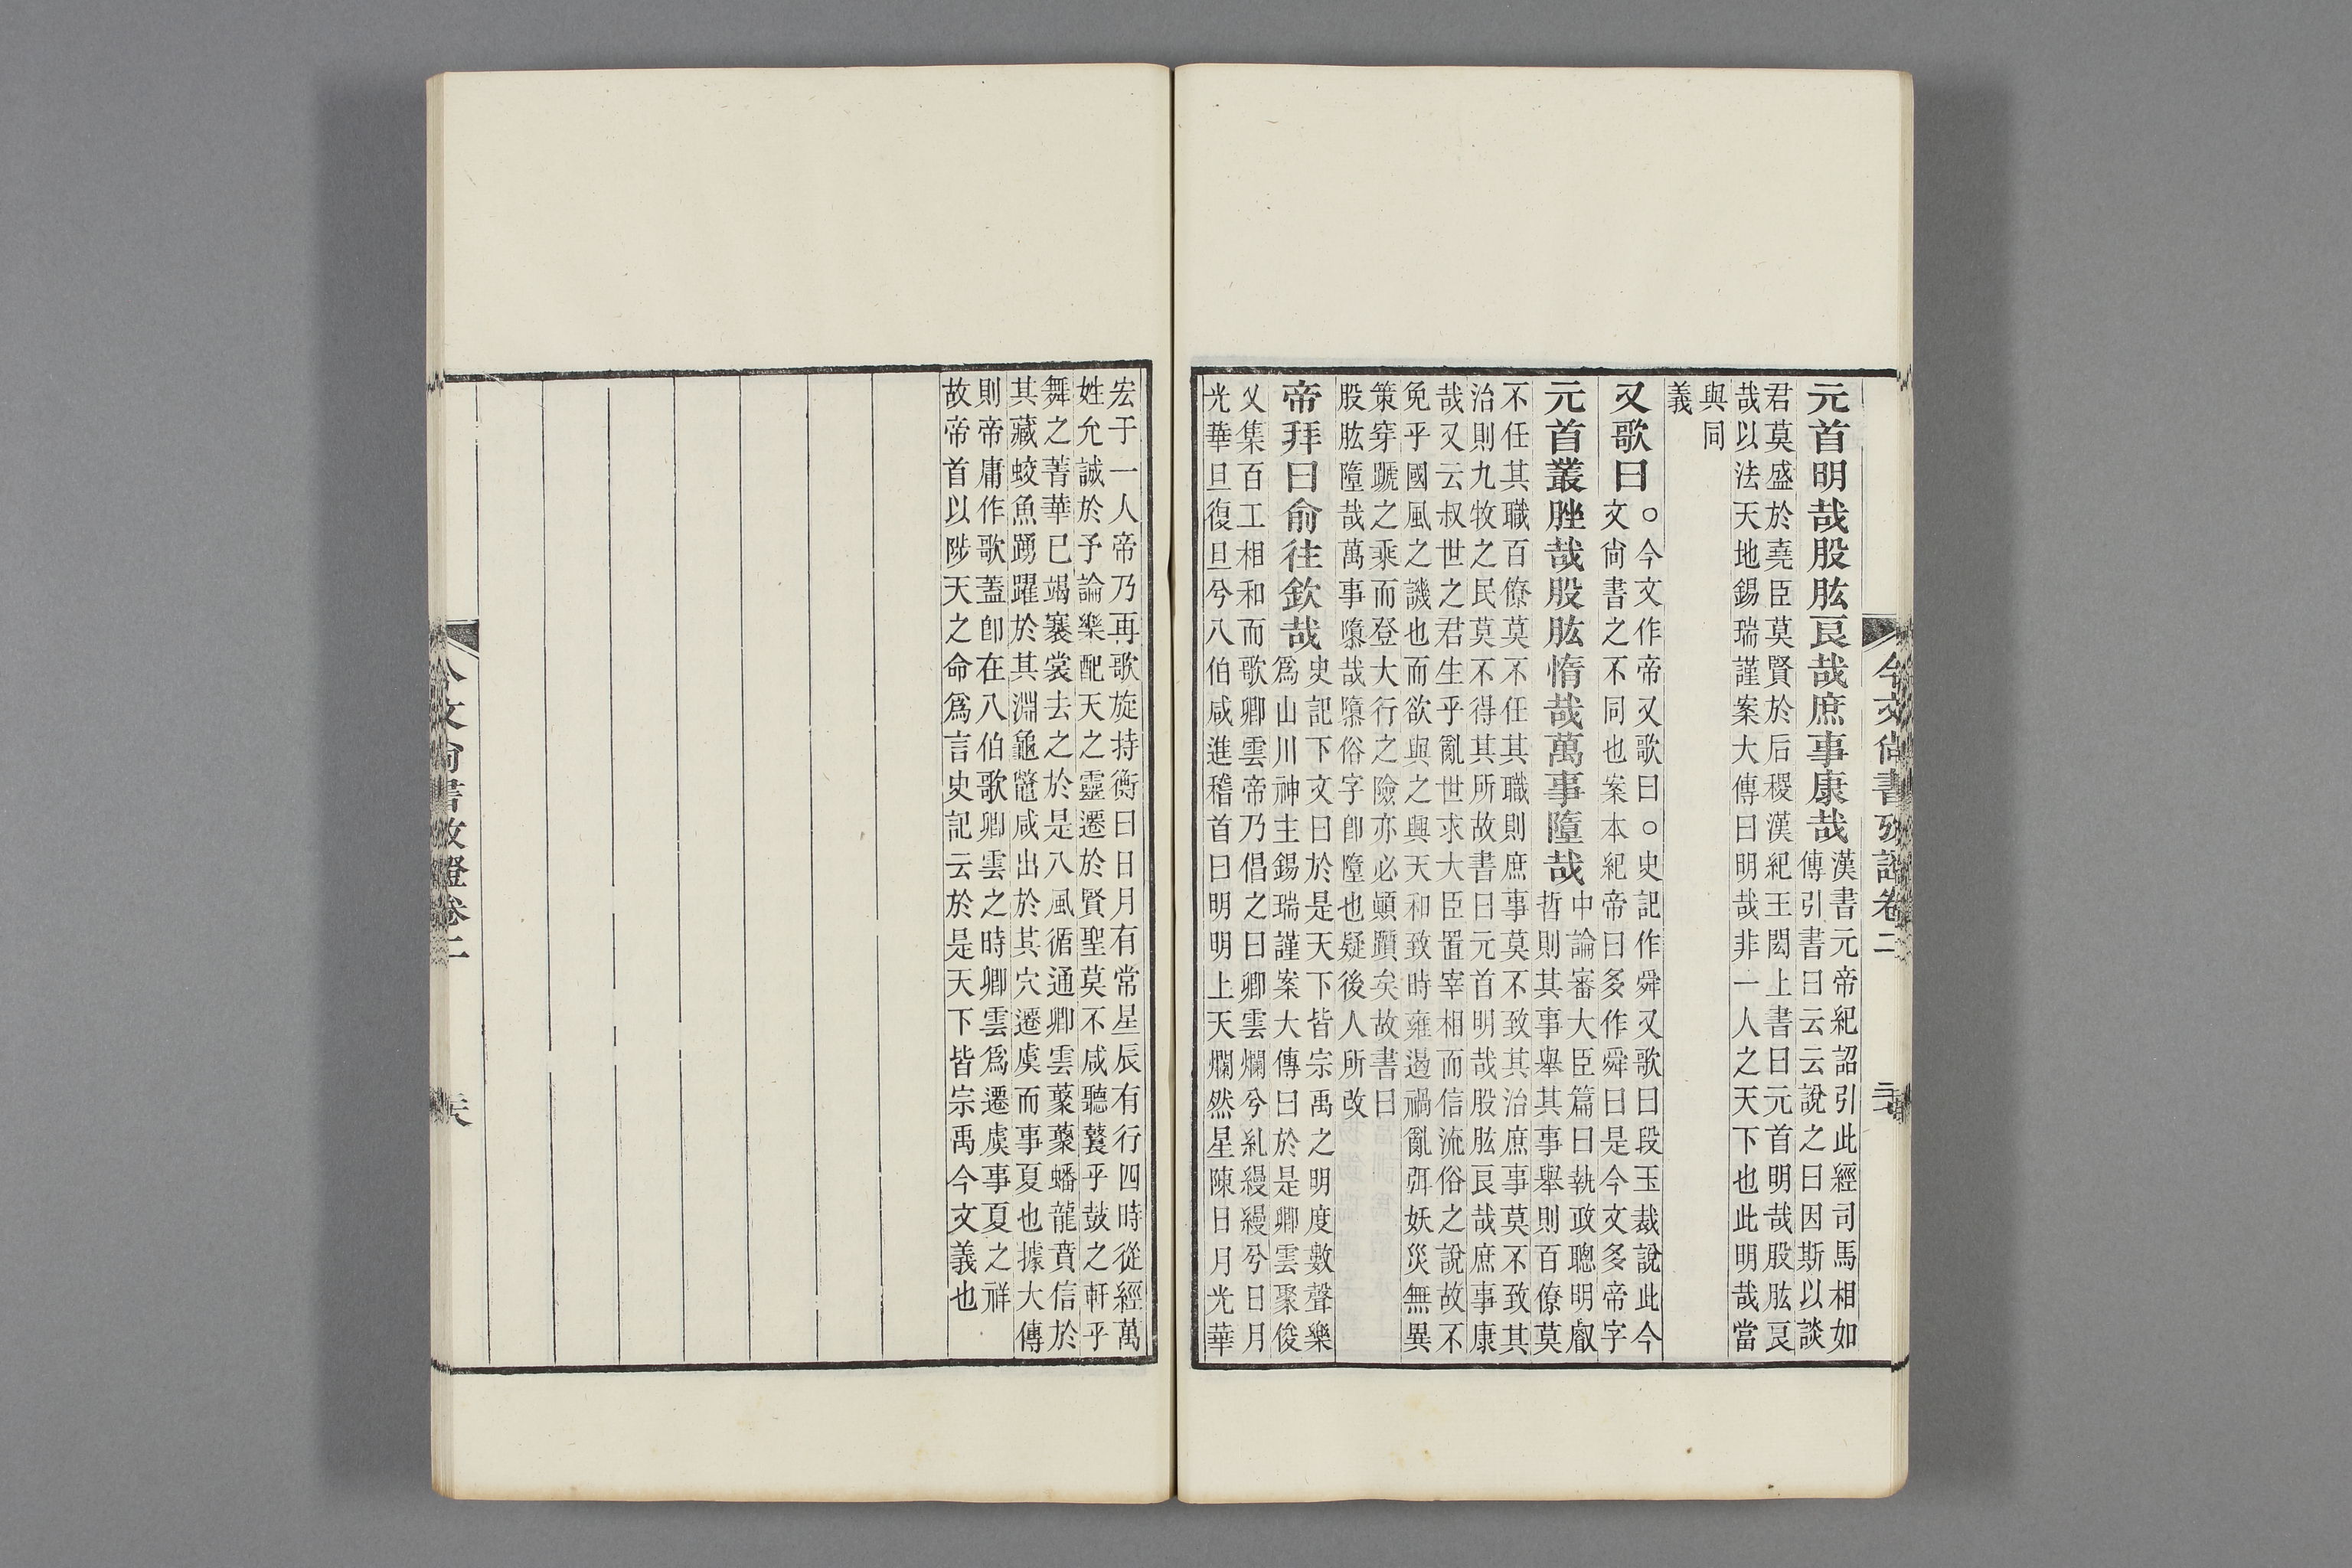 今文尚書攷證卷二
元首明哉股肱良哉庶事康哉
漢書元帝紀詔引此經司馬相如
傳引書曰云云說之曰因斯以談
君莫盛於堯臣莫賢於后稷漢紀王閎上書曰元首明哉股肱良
哉以法天地錫瑞謹案大傳曰明哉非一人之天下也此明哉當
與同
義
又歌曰
○今文作帝又歌曰○史記作舜又歌曰段玉裁說此今
文尚書之不同也案本紀帝曰多作舜曰是今文多帝字
元首叢脞哉股肱惰哉萬事墮哉
中論審大臣篇曰執政聰明叡
哲則其事舉其事舉則百僚莫
不任其職百僚莫不任其職則庶事莫不致其治庶事莫不致其
治則九牧之民莫不得其所故書曰元首明哉股肱良哉庶事康
哉又云叔世之君生乎亂世求大臣置宰相而信流俗之說故不
免乎國風之譏也而欲與之興天和致時雍遏禍亂弭妖災無異
策穿蹏之乘而登大行之險亦必顚躓矣故書曰
股肱墮哉萬事隳哉隳俗字卽墮也疑後人所改
帝拜曰俞往欽哉
史記下文曰於是天下皆宗禹之明度數聲樂
爲山川神主錫瑞謹案大傳曰於是卿雲聚俊
乂集百工相和而歌卿雲帝乃倡之曰卿雲爛兮糺縵縵兮日月
光華旦復旦兮八伯咸進稽首曰明明上天爛然星陳日月光華
宏于一人帝乃再歌旋持衡曰日月有常星辰有行四時從經萬
姓允誠於予論樂配天之靈遷於賢聖莫不咸聽鼚乎鼓之軒乎
舞之菁華已竭褰裳去之於是八風循通卿雲藂藂蟠龍賁信於
其藏蛟魚踴躍於其淵龜鼈咸出於其穴遷虞而事夏也據大傳
則帝庸作歌蓋卽在八伯歌卿雲之時卿雲爲遷虞事夏之祥
故帝首以陟天之命爲言史記云於是天下皆宗禹今文義也
今文尚書攷證卷二